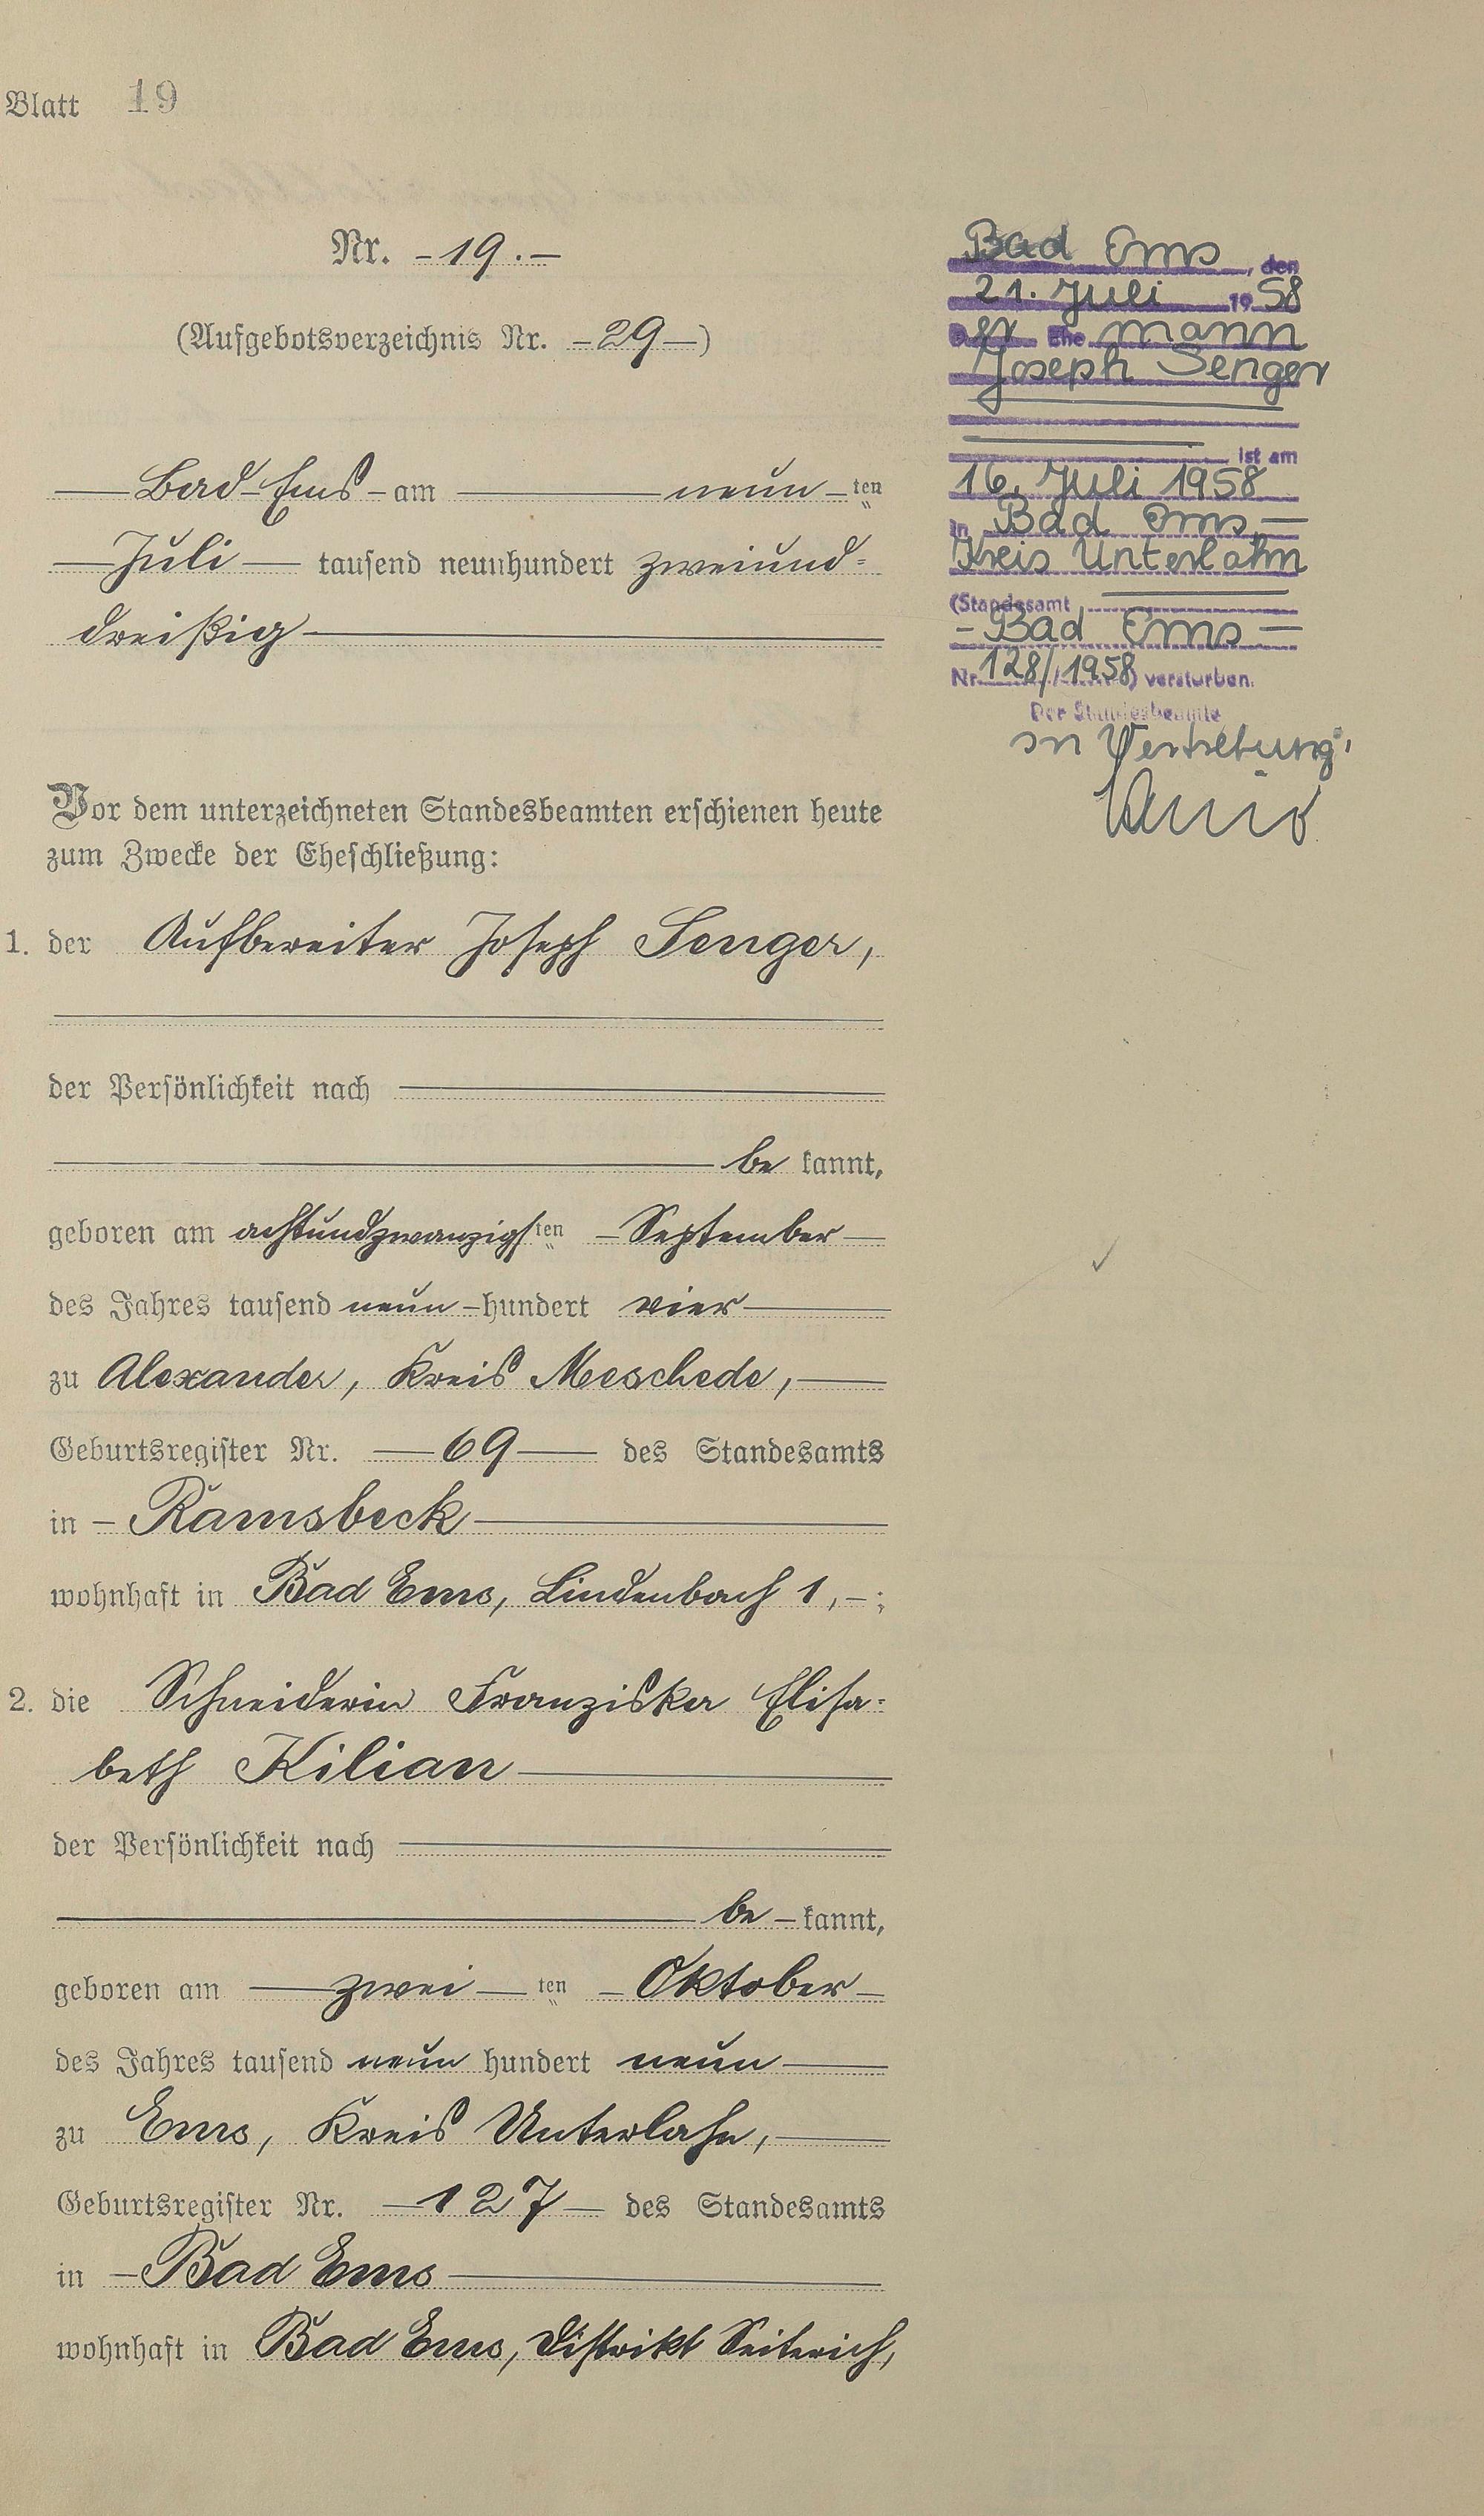 Blatt 19
Nr. -19.-
(Aufgebotsverzeichnis Nr. -29-)
Bad-Ems - am neun-ten
Juli tausend neunhundert zweiund-
dreißig
Vor dem unterzeichneten Standesbeamten erschienen heute
zum Zwecke der Eheschließung:
1. der Aufbereiter Joseph Senger,
der Persönlichkeit nach
be kannt,
geboren am achtundzwanzigsten - September
des Jahres tausend neun-hundert vier
zu Alexander, Kreis Meschede,
Geburtsregister Nr. 69 des Standesamts
in - Ramsbeck
wohnhaft in Bad Ems, Lindenbach 1,-;
2. die Schneiderin Franziska Elisa-
beth Kilian
der Persönlichkeit nach
be-kannt,
geboren am zwei ten - Oktober
des Jahres tausend neun hundert neun
zu Ems, Kreis Unterlahn,
Geburtsregister Nr. 127 des Standesamts
in - Bad Ems
wohnhaft in Bad Ems, Distrikt Seiterich,
Bad Ems, den
21. Juli 1958
Der Ehemann
Joseph Senger
ist am
16. Juli 1958
in Bad Ems,-
Kreis Unterlahn
(Standesamt
- Bad Ems -
Nr. 128/1958) verstorben.
Der Standesbeamte
In Vertretung: